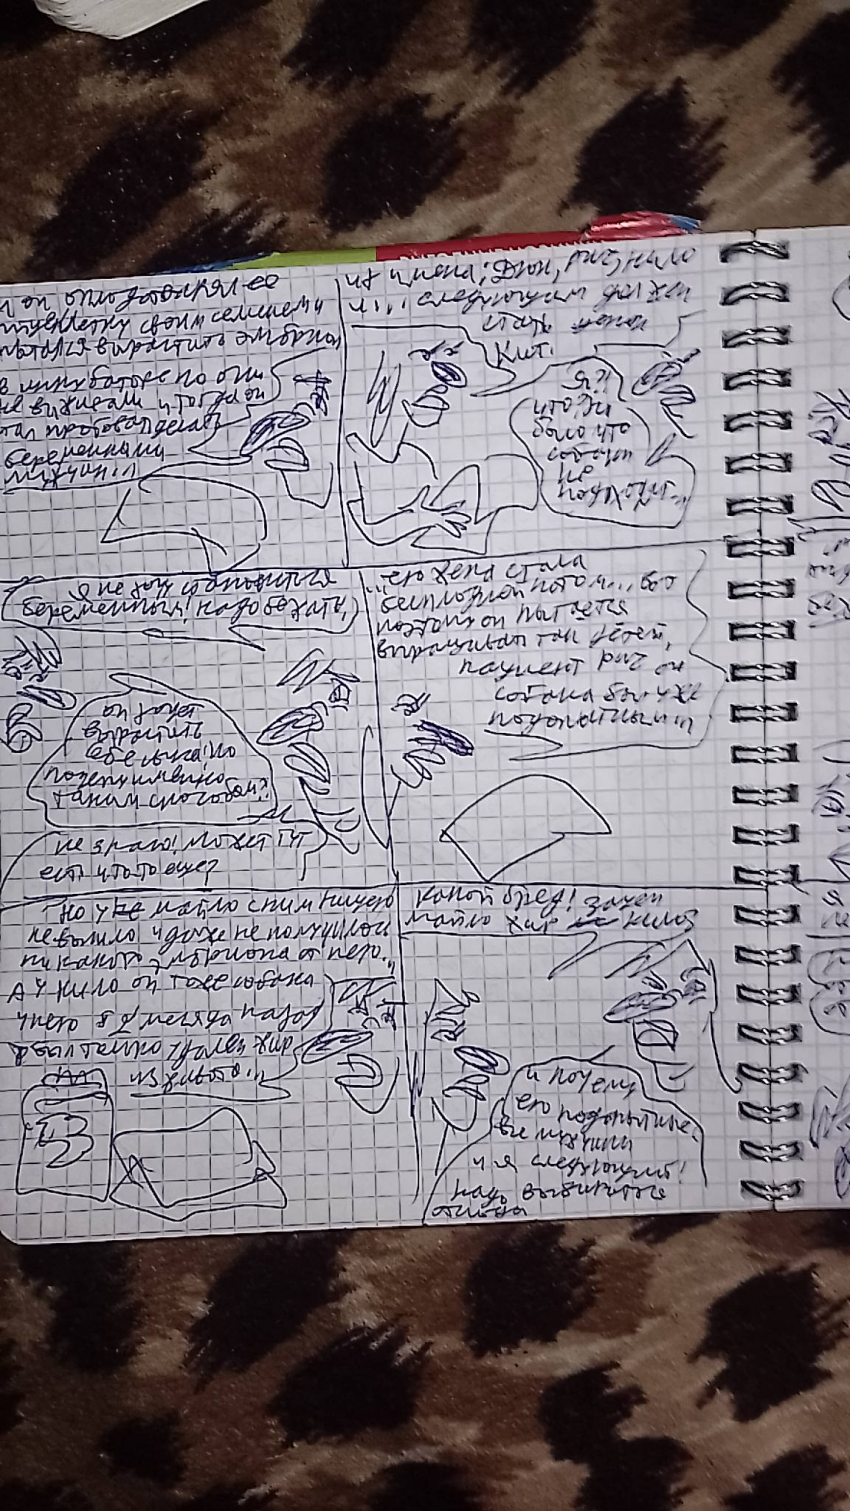 и он оплодотворял ее
яйцеклетку своим семенем и
пытался вырастить эмбрион
в инкубаторе но они
не выживали и тогда он
стал пробовать делать
беременными
мужчин...
их имена: Дюк, Рич, Кило
и... следующим должен
стать меня
Кит.
Я?
что же
было что
собаки
не
подходят...
я не хочу становиться
беременным! надо бежать!
он хочет
вырастить
ребенка но
почему именно
таким способом?
не знаю! может тут
есть что то еще?
...его жена стала
бесплодной потом... вот
поэтому он пытается
выращивать так детей,
пациент Рич он
собака был уже
подопытным...
но уже мало с ним ничего
не вышло и даже не получилось
никакого эмбриона от него...
А у Кило он тоже собака
у него 8 2 месяца назад
был только удален жир
из живота...
какой бред! зачем
жир
и почему
его подопытные
все мужчины
и я следующий!
надо выбираться
отсюда